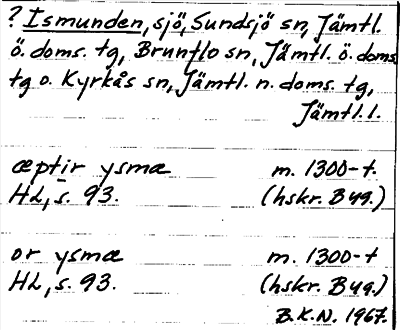 ? Ismunden, sjö, Sundsjö sn, Jämtl.
ö. doms. tg, Brunflo sn, Jämtl. ö. doms.
tg o. Kyrkås sn, Jämtl. n. doms. tg,
Jämtl. l.
æptir ysmæ m. 1300-t.
HL, s. 93. (hskr. B 49.)
or ysmæ m. 1300-t
HL, s. 93. (hskr. B 49.)
B.K.N. 1967.